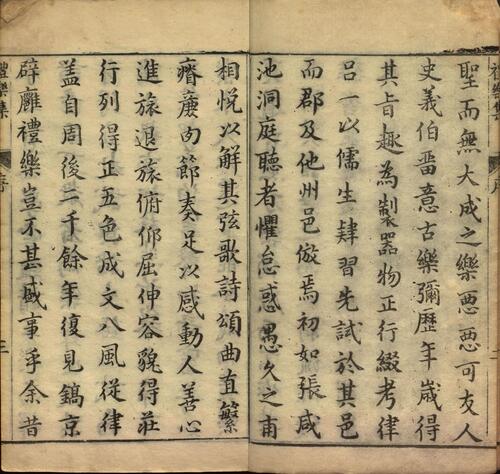 聖而無大成之樂悪悪可友人
史義伯畱意古樂彌歷年歲得
其旨趣為製器物正行綴考律
吕一以儒生肄習先試於其邑
而郡及他州邑倣焉初如張咸
池洞庭聽者懼怠惑愚久之甫
相悦以解其弦歌詩頌曲直繁
瘠廉肉節奏足以感動人善心
進旅退旅俯仰屈伸容貌得莊
行列得正五色成文八風從律
盖自周後二千餘年復見鎬京
辟廱禮樂豈不甚盛事乎余昔
禮樂集
序
三